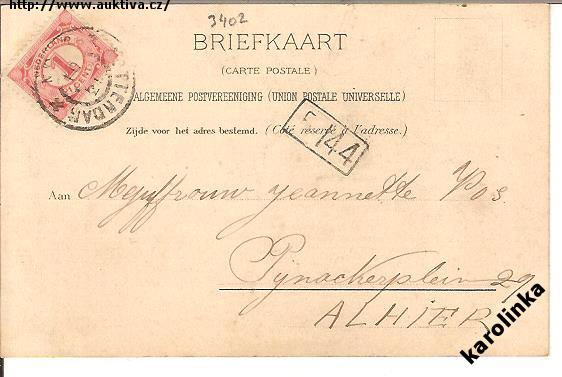 http://www.auktiva.cz/
3402
BRIEFKAART
(CARTE POSTALE)
ALGEMEENE POSTVEREENIGING (UNION POSTALE UNIVERSELLE)
Zijde voor het adres bestemd. (Côté réservé à l'adresse.)
144
NEDERLAND
1
Aan Mejuffrouw Jeannette Vos
Pijnackerplein 29
ALHIER
karolinka